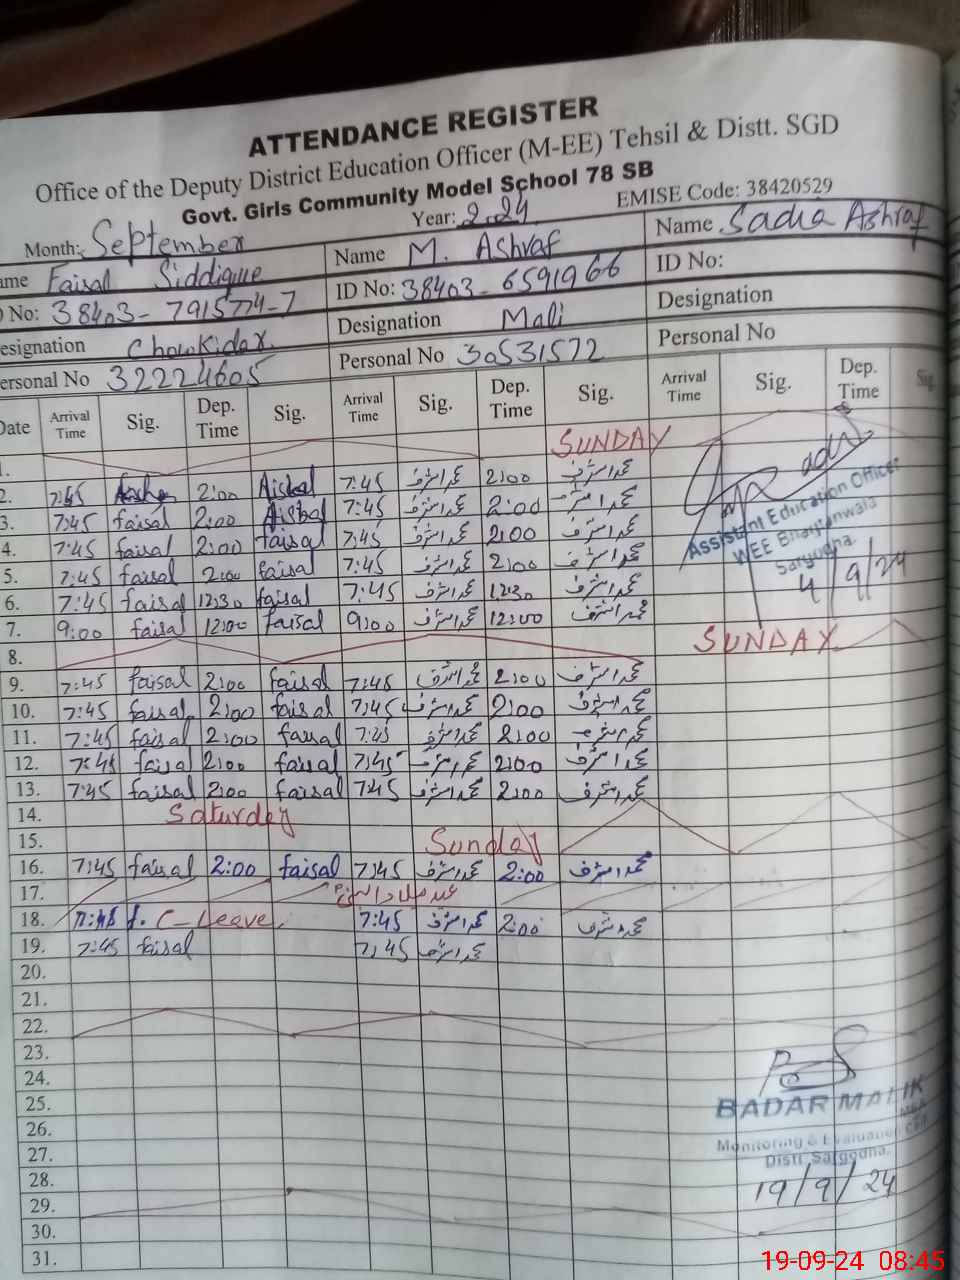 ATTENDANCE REGISTER
Office of the Deputy District Education Officer (M-EE) Tehsil & Distt. SGD
Govt. Girls Community Model School 78 SB
Month: September Year: 2024 EMISE Code: 38420529
ame Faisal Siddique Name M. Ashraf Name Sadia Ashraf
No: 38403-7915774-7 ID No: 38403-6591966 ID No:
esignation Chowkidar Designation Mali Designation
ersonal No 32224605 Personal No 30531572 Personal No
Date Arrival Time Sig. Dep. Time Sig. Arrival Time Sig. Dep. Time Sig. Arrival Time Sig. Dep. Time Sig
1. SUNDAY
2. 7:45 2:00 7:45 محمد اشرف 2:00 محمد اشرف
3. 7:45 faisal 2:00 7:45 محمد اشرف 2:00 محمد اشرف
4. 7:45 faisal 2:00 faisal 7:45 محمد اشرف 2:00 محمد اشرف
5. 7:45 faisal 2:00 faisal 7:45 محمد اشرف 2:00 محمد اشرف
6. 7:45 faisal 12:30 faisal 7:45 محمد اشرف 12:30 محمد اشرف
7. 9:00 faisal 12:00 faisal 9:00 محمد اشرف 12:00 محمد اشرف
Assistant Education Officer
WEE Bhagtanwala
Sargodha.
4/9/24
8. SUNDAY
9. 7:45 faisal 2:00 faisal 7:45 محمد اشرف 2:00 محمد اشرف
10. 7:45 faisal 2:00 faisal 7:45 محمد اشرف 2:00 محمد اشرف
11. 7:45 faisal 2:00 faisal 7:45 محمد اشرف 2:00 محمد اشرف
12. 7:45 faisal 2:00 faisal 7:45 محمد اشرف 2:00 محمد اشرف
13. 7:45 faisal 2:00 faisal 7:45 محمد اشرف 2:00 محمد اشرف
14. Saturday
15. Sunday
16. 7:45 faisal 2:00 faisal 7:45 محمد اشرف 2:00 محمد اشرف
17. عید میلاد النبی
18. C-Leave 7:45 محمد اشرف 2:00 محمد اشرف
19. 7:45 faisal 7:45 محمد اشرف
20.
21.
22.
23.
24.
25.
26.
27.
28.
29.
30.
31.
BADAR MALIK
MEA
Monitoring & Evaluation Cell
Distt. Sargodha.
19/9/24
19-09-24 08:45